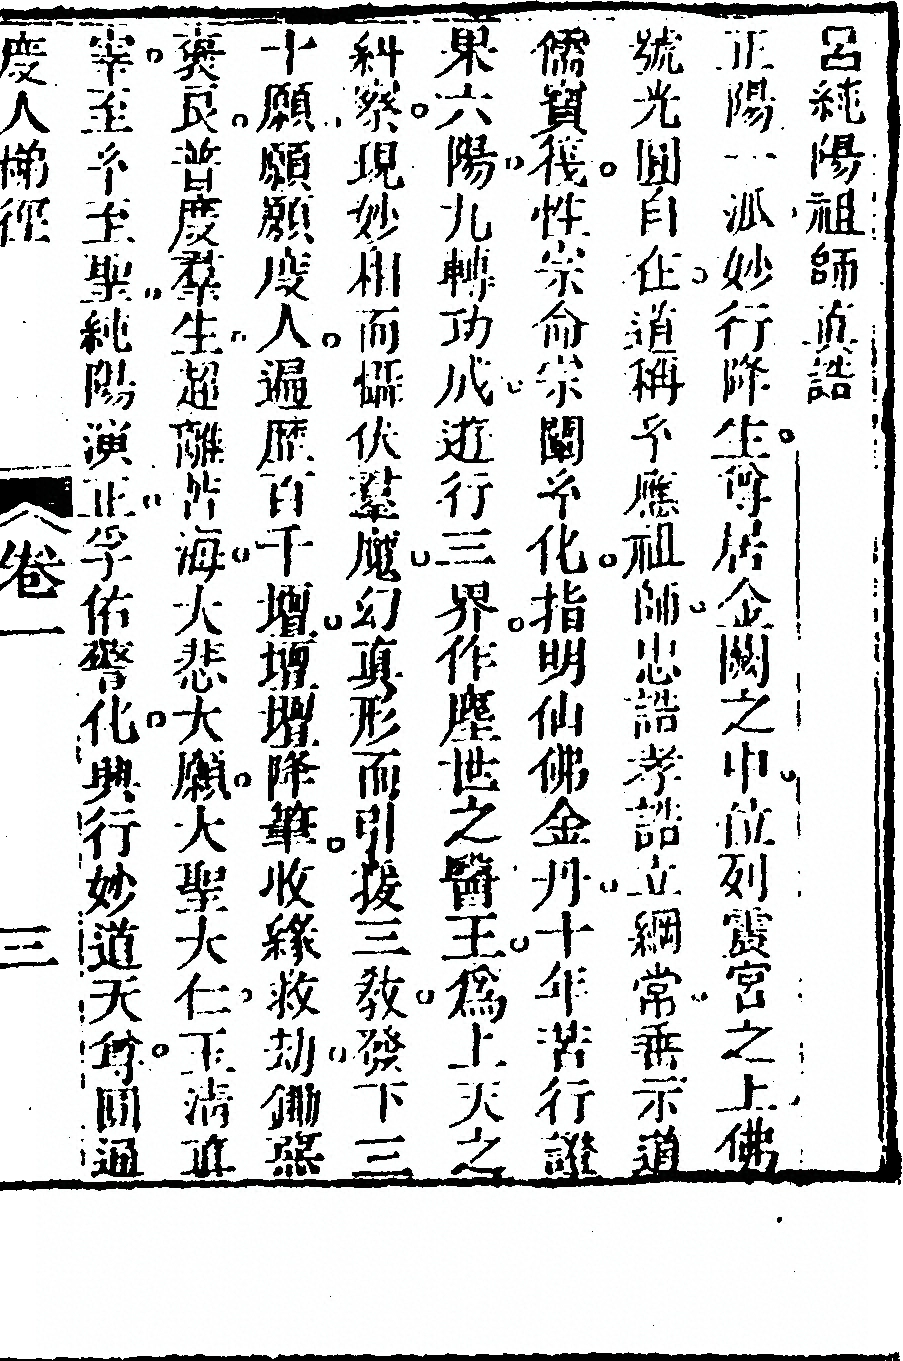 呂純陽祖師眞誥
正陽一派妙行降生尊居金闕之中位列震宮之上佛
號光圓自在道稱孚應祖師忠誥孝誥立綱常垂示道
儒寶筏性宗命宗闡孚化指明仙佛金丹十年苦行證
果六陽九轉功成遊行三界作塵世之醫王爲上天之
糾察現妙相而懾伏羣魔幻眞形而引援三教發下三
十願願願度人遍歷百千壇壇壇降筆收緣救劫鋤惡
褒良普度羣生超離苦海大悲大願大聖大仁玉清眞
宰至孚至聖純陽演正孚佑警化興行妙道天尊圓通
度人梯徑
卷一
三